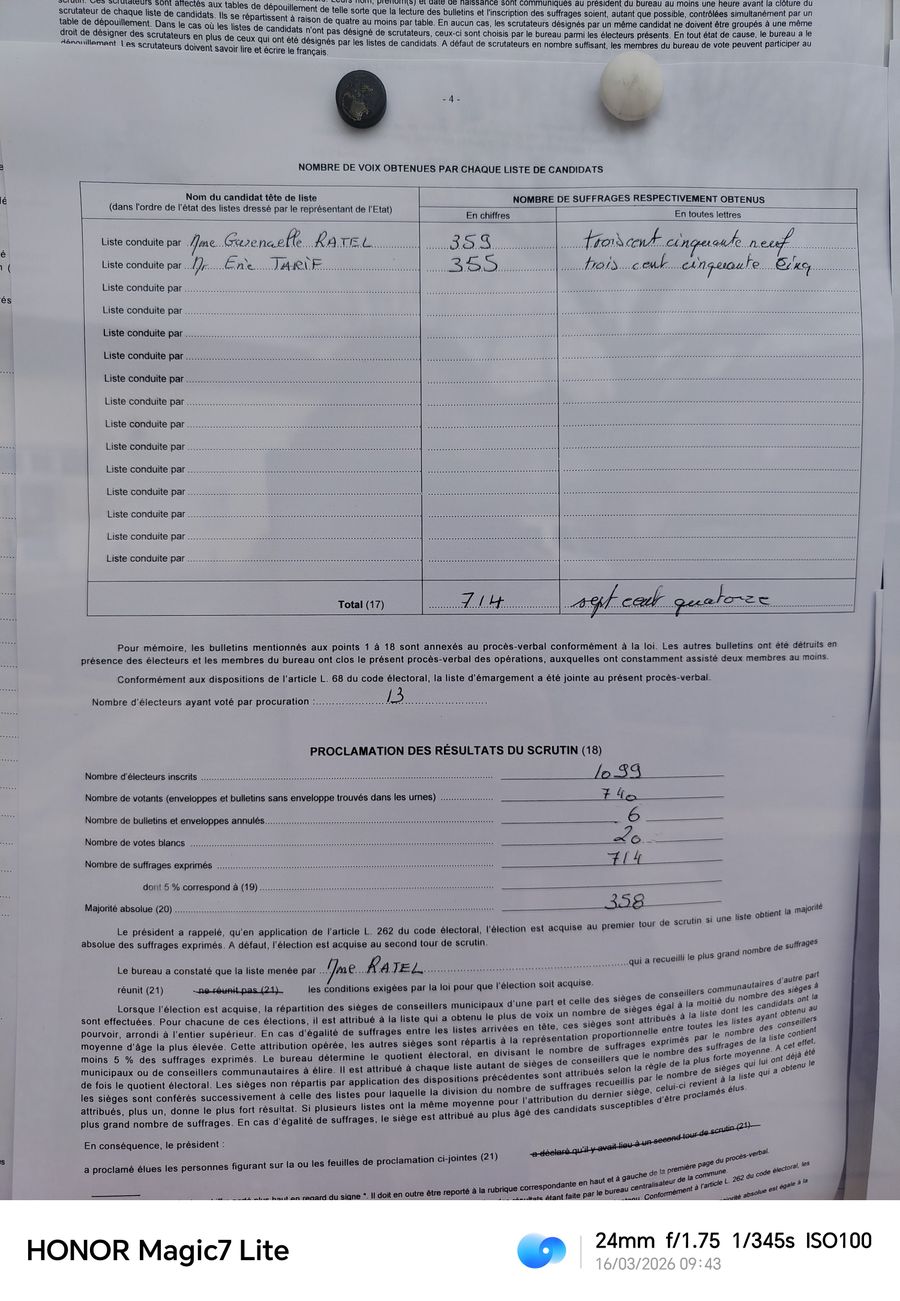 scrutateur de chaque liste de candidats. Ils se répartissent à raison de quatre au moins par table. En aucun cas, les scrutateurs désignés par un même candidat ne doivent être groupés à une même
table de dépouillement. Dans le cas où les listes de candidats n'ont pas désigné de scrutateurs, ceux-ci sont choisis par le bureau parmi les électeurs présents. En tout état de cause, le bureau a le
droit de désigner des scrutateurs en plus de ceux qui ont été désignés par les listes de candidats. A défaut de scrutateurs en nombre suffisant, les membres du bureau de vote peuvent participer au
dépouillement. Les scrutateurs doivent savoir lire et écrire le français.
- 4 -
NOMBRE DE VOIX OBTENUES PAR CHAQUE LISTE DE CANDIDATS
Nom du candidat tête de liste
(dans l'ordre de l'état des listes dressé par le représentant de l'Etat)
NOMBRE DE SUFFRAGES RESPECTIVEMENT OBTENUS
En chiffres
En toutes lettres
Liste conduite par Mme Gwenaelle RATEL 359 trois cent cinquante neuf
Liste conduite par Mr Eric TARIF 355 trois cent cinquante cinq
Liste conduite par
Liste conduite par
Liste conduite par
Liste conduite par
Liste conduite par
Liste conduite par
Liste conduite par
Liste conduite par
Liste conduite par
Liste conduite par
Liste conduite par
Liste conduite par
Liste conduite par
Total (17) 714 sept cent quatorze
Pour mémoire, les bulletins mentionnés aux points 1 à 18 sont annexés au procès-verbal conformément à la loi. Les autres bulletins ont été détruits en
présence des électeurs et les membres du bureau ont clos le présent procès-verbal des opérations, auxquelles ont constamment assisté deux membres au moins.
Conformément aux dispositions de l'article L. 68 du code électoral, la liste d'émargement a été jointe au présent procès-verbal.
Nombre d'électeurs ayant voté par procuration : 13
PROCLAMATION DES RÉSULTATS DU SCRUTIN (18)
Nombre d'électeurs inscrits 1099
Nombre de votants (enveloppes et bulletins sans enveloppe trouvés dans les urnes) 740
Nombre de bulletins et enveloppes annulés 6
Nombre de votes blancs 20
Nombre de suffrages exprimés 714
dont 5 % correspond à (19)
Majorité absolue (20) 358
Le président a rappelé, qu'en application de l'article L. 262 du code électoral, l'élection est acquise au premier tour de scrutin si une liste obtient la majorité
absolue des suffrages exprimés. A défaut, l'élection est acquise au second tour de scrutin.
Le bureau a constaté que la liste menée par Mme RATEL qui a recueilli le plus grand nombre de suffrages
réunit (21) ne réunit pas (21) les conditions exigées par la loi pour que l'élection soit acquise.
Lorsque l'élection est acquise, la répartition des sièges de conseillers municipaux d'une part et celle des sièges de conseillers communautaires d'autre part
sont effectuées. Pour chacune de ces élections, il est attribué à la liste qui a obtenu le plus de voix un nombre de sièges égal à la moitié du nombre des sièges à
pourvoir, arrondi à l'entier supérieur. En cas d'égalité de suffrages entre les listes arrivées en tête, ces sièges sont attribués à la liste dont les candidats ont la
moyenne d'âge la plus élevée. Cette attribution opérée, les autres sièges sont répartis à la représentation proportionnelle entre toutes les listes ayant obtenu au
moins 5 % des suffrages exprimés. Le bureau détermine le quotient électoral, en divisant le nombre de suffrages exprimés par le nombre des conseillers
municipaux ou de conseillers communautaires à élire. Il est attribué à chaque liste autant de sièges de conseillers que le nombre des suffrages de la liste contient
de fois le quotient électoral. Les sièges non répartis par application des dispositions précédentes sont attribués selon la règle de la plus forte moyenne. A cet effet,
les sièges sont conférés successivement à celle des listes pour laquelle la division du nombre de suffrages recueillis par le nombre de sièges qui lui ont déjà été
attribués, plus un, donne le plus fort résultat. Si plusieurs listes ont la même moyenne pour l'attribution du dernier siège, celui-ci revient à la liste qui a obtenu le
plus grand nombre de suffrages. En cas d'égalité de suffrages, le siège est attribué au plus âgé des candidats susceptibles d'être proclamés élus.
En conséquence, le président :
a proclamé élues les personnes figurant sur la ou les feuilles de proclamation ci-jointes (21) a déclaré qu'il y avait lieu à un second tour de scrutin (21)
en regard du signe *. Il doit en outre être reporté à la rubrique correspondante en haut et à gauche de la première page du procès-verbal.
étant faite par le bureau centralisateur de la commune.
Conformément à l'article L. 262 du code électoral, les
absolue est égale à la
HONOR Magic7 Lite
24mm f/1.75 1/345s ISO100
16/03/2026 09:43